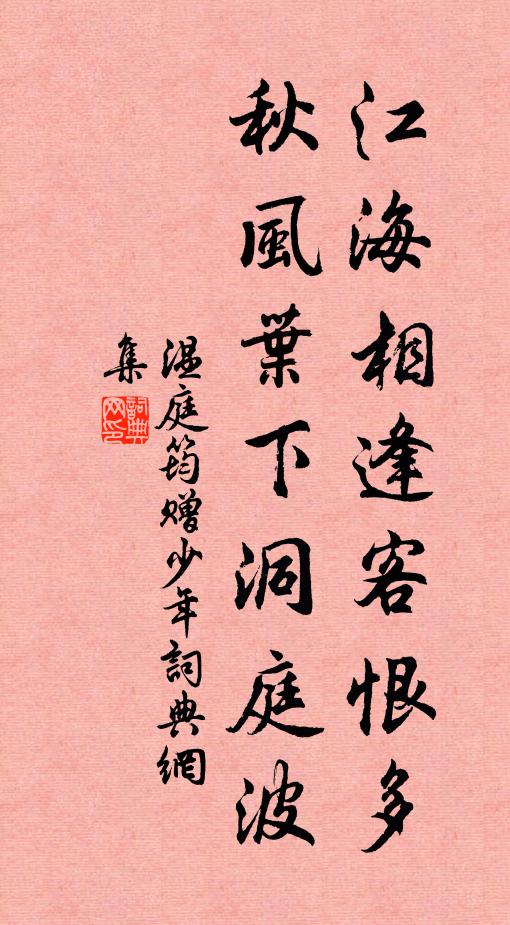 江海相逢客恨多
秋風葉下洞庭波
温庭筠贈少年詞典網
集
詞典
网印